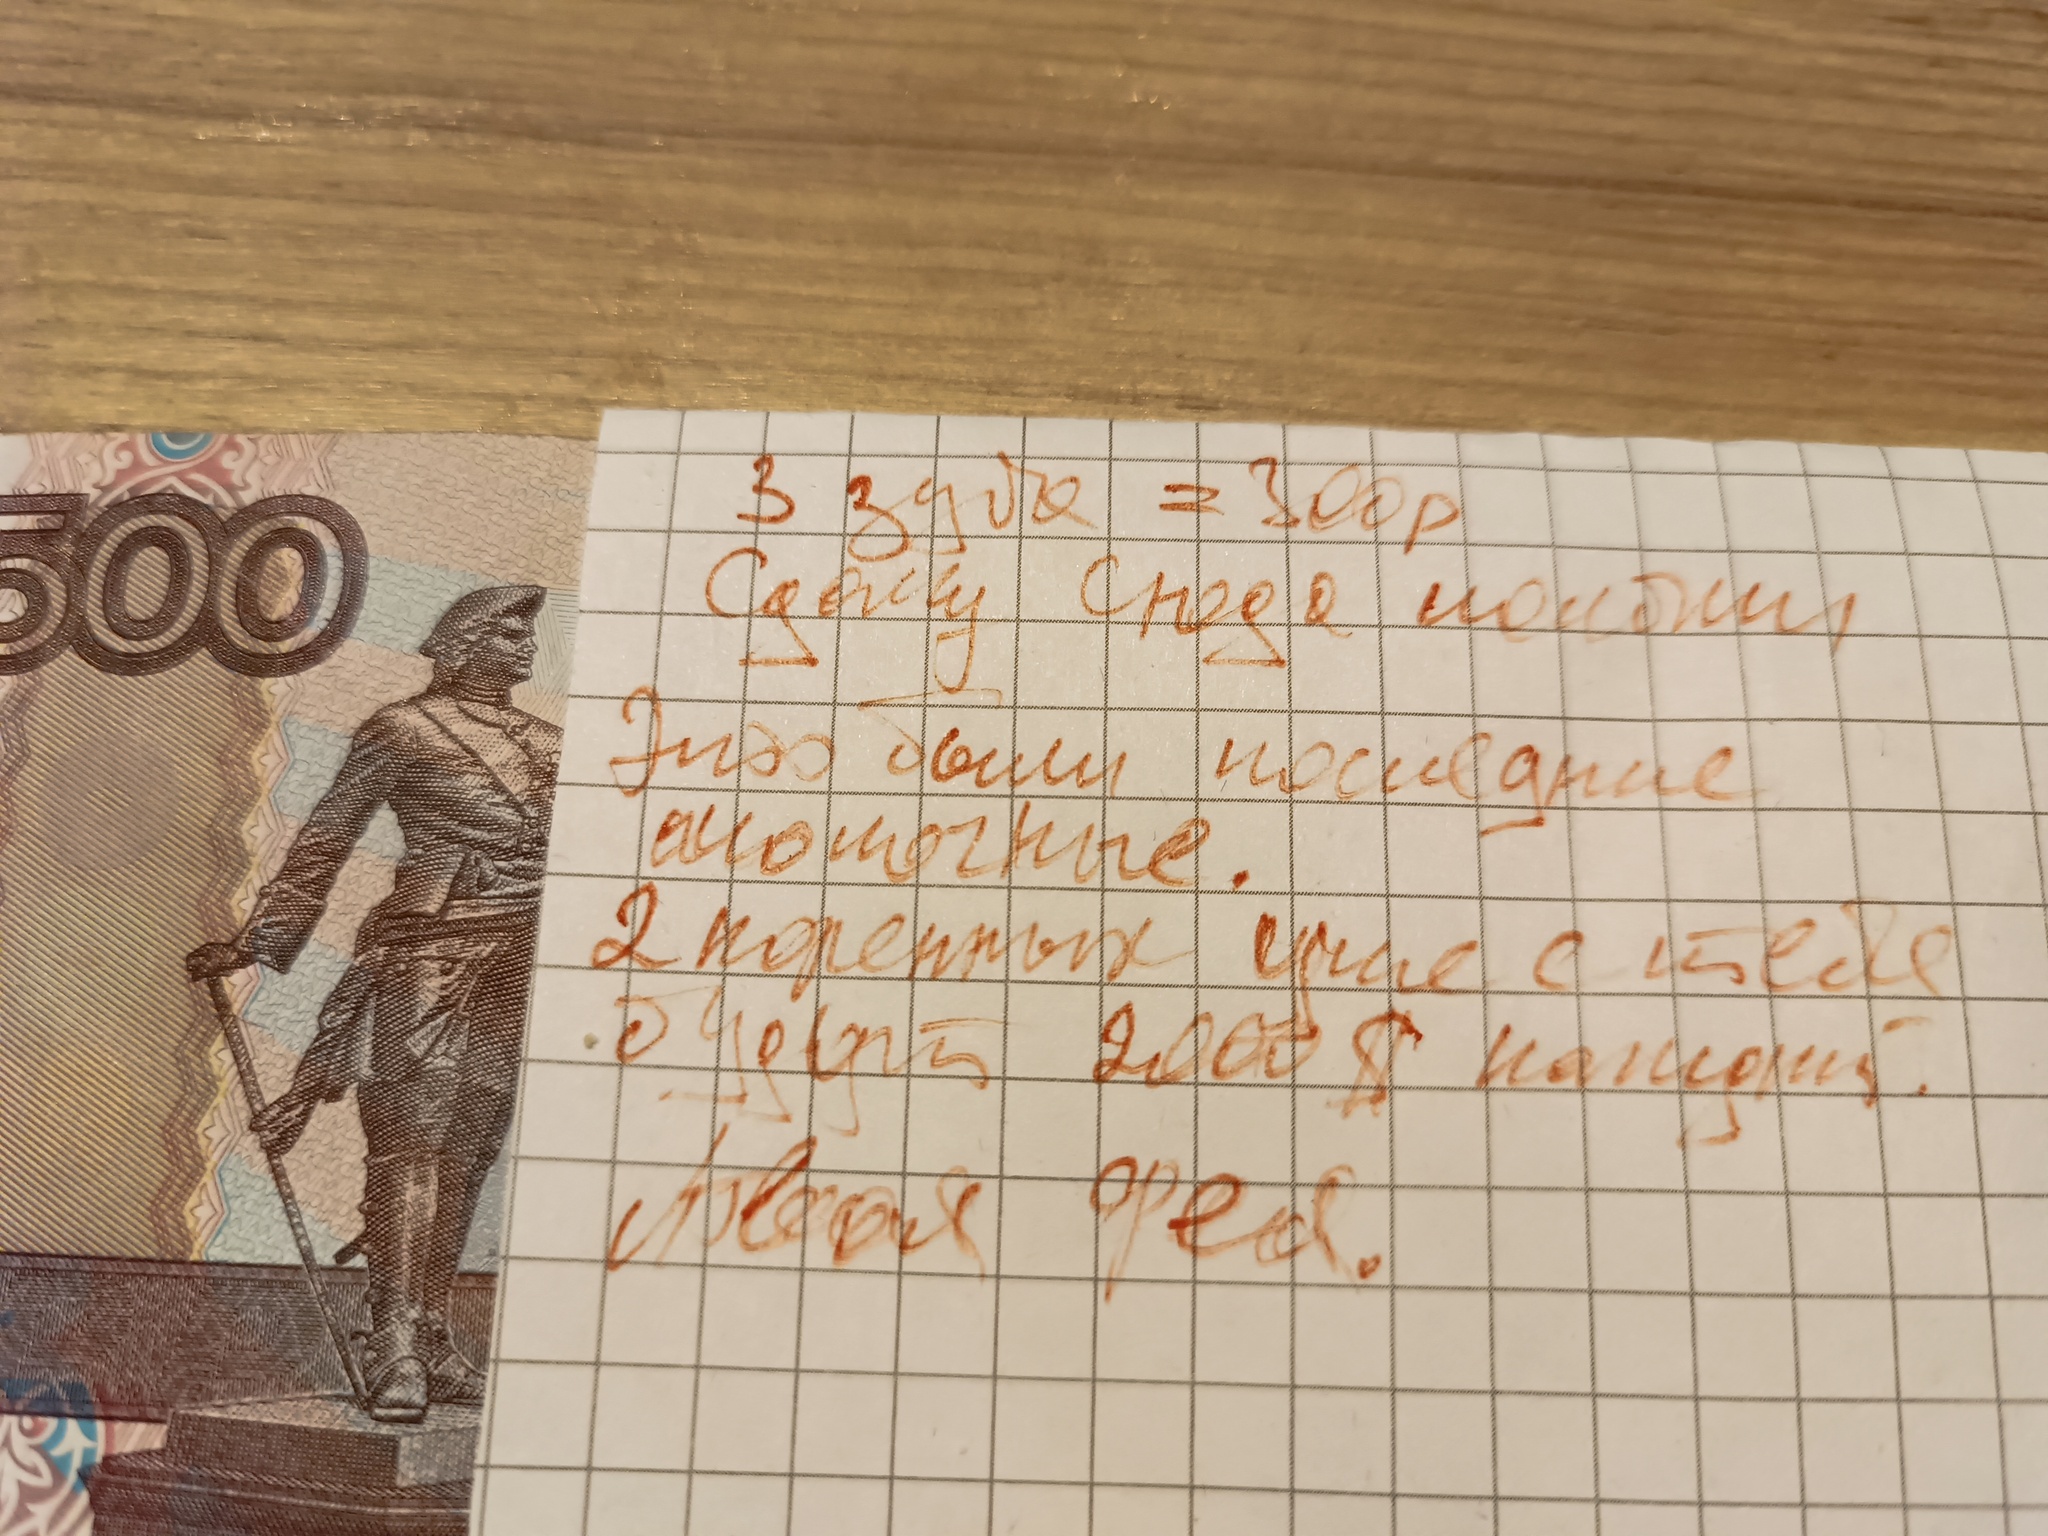 500
3 зуба = 300р
Сдачу сюда положи,
Это были последние
молочные.
2 коренных уже с тебя
будут 2000$ каждый.
Твоя фея.